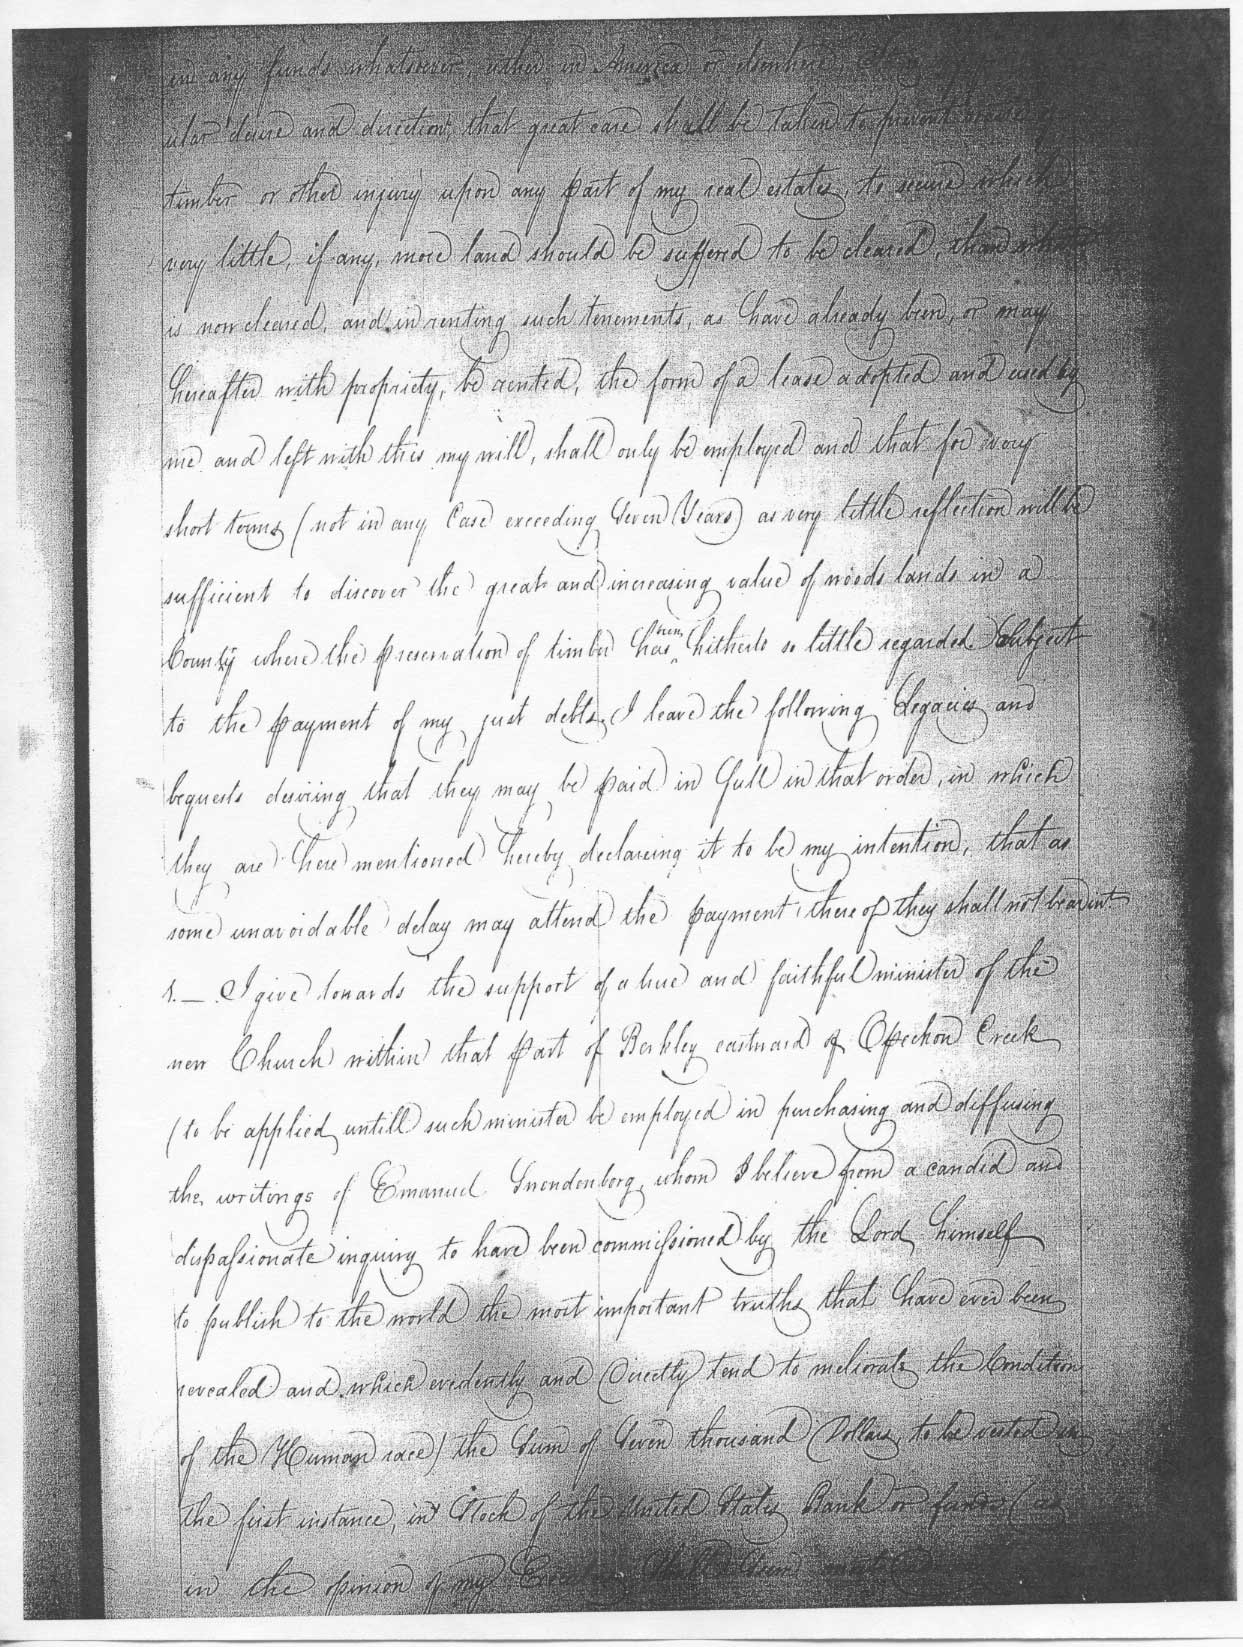 in any funds whatsoever, either in America or elsewhere, It is my
ular desire and direction, that great care shall be taken to prevent waste of
timber or other injury upon any part of my real estates, to secure which
very little, if any, more land should be suffered to be cleared, than what
is now cleared, and in renting such tenements, as have already been, or may
hereafter with propriety, be rented, the form of a lease adopted and used by
me and left with this my will, shall only be employed and that for very
short terms (not in any Case exceeding Seven Years) as very little reflection will be
sufficient to discover the great and increasing value of woods lands in a
County where the preservation of timber has been hitherto so little regarded. Subject
to the payment of my just debts, I leave the following Legacies and
bequests desiring that they may be paid in full in that order, in which
they are here mentioned hereby declareing it to be my intention, that as
some unavoidable delay may attend the payment thereof they shall not bear int
1. — I give towards the support of a true and faithful minister of the
new Church within that part of Berkley eastward of Opeckon Creek
(to be applied untill such minister be employed in purchasing and diffusing
the writings of Emanuel Swendenborg, whom I believe from a candid and
dispassionate inquiry to have been commissioned by the Lord himself
to publish to the world the most important truths that have ever been
revealed and which evidently and directly tend to meliorate the Condition
of the Human race) the Sum of Seven thousand Dollars, to be vested in
the first instance, in Stock of the United States Bank or funds (as
in the opinion of my Executors shall seem most